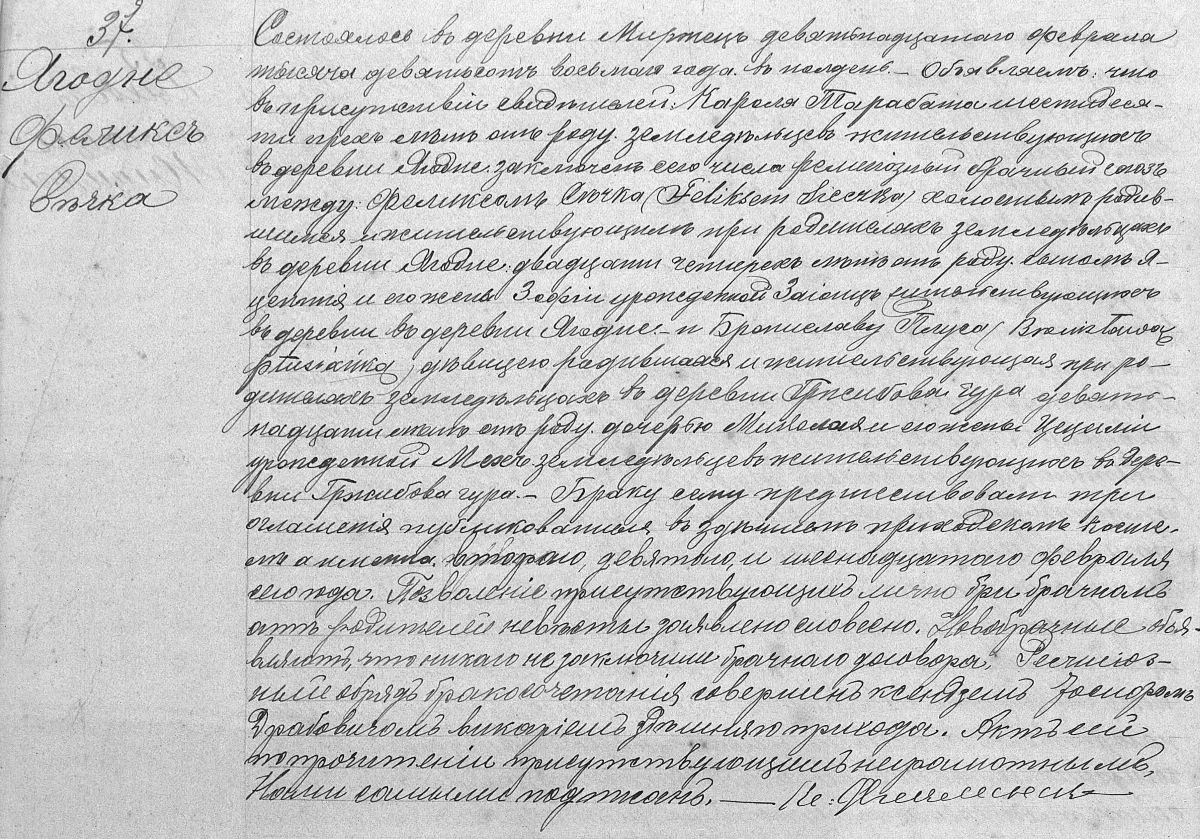 37.
Ягодне
Феликсъ
Сѣчка
Состоялось въ деревни Миржецъ девятьнадцатаго февраля
тысяча девятьсотъ восьмаго года въ полдень. — Объявляемъ: что
въ присутствіи свидѣтелей: Кароля Тарабата шестидеся-
ти трехъ лѣтъ отъ роду земледѣльцевъ жительствующихъ
въ деревни Ягодне. заключенъ сего числа религіозный брачный союзъ
между: Феликсомъ Сѣчка (Feliksem Siečka) холостымъ родив-
шимся и жительствующимъ при родителяхъ земледѣльцахъ
въ деревни Ягодне. двадцати четырехъ лѣтъ отъ роду сыномъ Я-
центія и его жены Зофіи урожденной Заіонцъ жительствующихъ
въ деревни въ деревни Ягодне — и Брониславу Плуса
дѣвицею родившаяся и жительствующая при ро-
дителяхъ земледѣльцахъ въ деревни Гржибова гура девять-
надцати лѣтъ отъ роду. дочерью Миколая и его жены Цециліи
урожденной Мехъ земледѣльцевъ жительствующихъ въ дере-
вни Гржибова гура. — Браку сему предшествовали три
оглашенія публикованныя въ здѣшнемъ приходскомъ косте-
лѣ а именно. втораго, девятого, и шеснадцатаго февраля
сего года. Позволеніе присутствующихъ лично при брачномъ
отъ родителей невѣсты заявлено словесно. Новобрачные объя-
вляютъ, что никаго не заключили брачнаго договора. Религіоз-
ный обрядъ бракосочетанія совершенъ ксендземъ Іосифомъ
Драбовичомъ викаріемъ здѣшняго прихода. Актъ сей
по прочитеніи присутствующимъ неграмотнымъ,
Нами самыми подписанъ. —